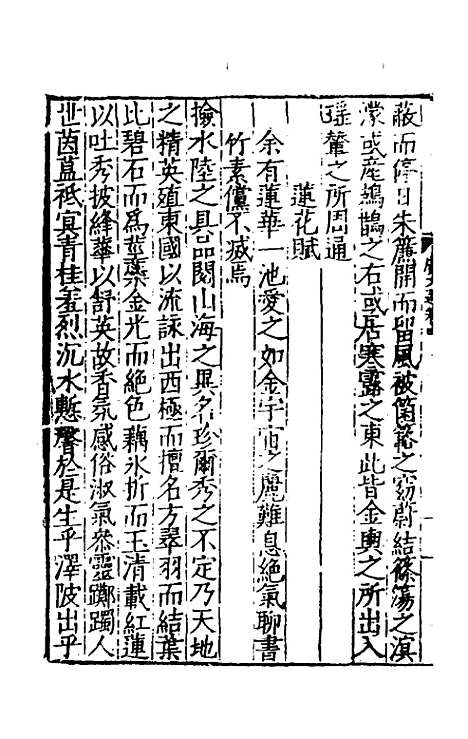 蔽而停日朱簾開而留風被箘簵之窈蔚結篠蕩之溟
濛或産鳷鵲之右或居寒露之東此皆金輿之所出入
瑶輦之所周通
蓮花賦
余有蓮華一池愛之如金宇宙之麗難息絶氣聊書
竹素儻不滅焉
撿水陸之具品閲山海之異名珍爾秀之不定乃天地
之精英殖東國以流詠出西極而擅名方翠羽而結葉
比碧石而爲莖蘂金光而絶色藕氷折而玉清載紅蓮
以吐秀披絳華以舒英故香氛感俗淑氣叅靈躑躅人
世茵𦸣祗冥青桂羞烈沉水慙馨於是生乎澤陂出乎